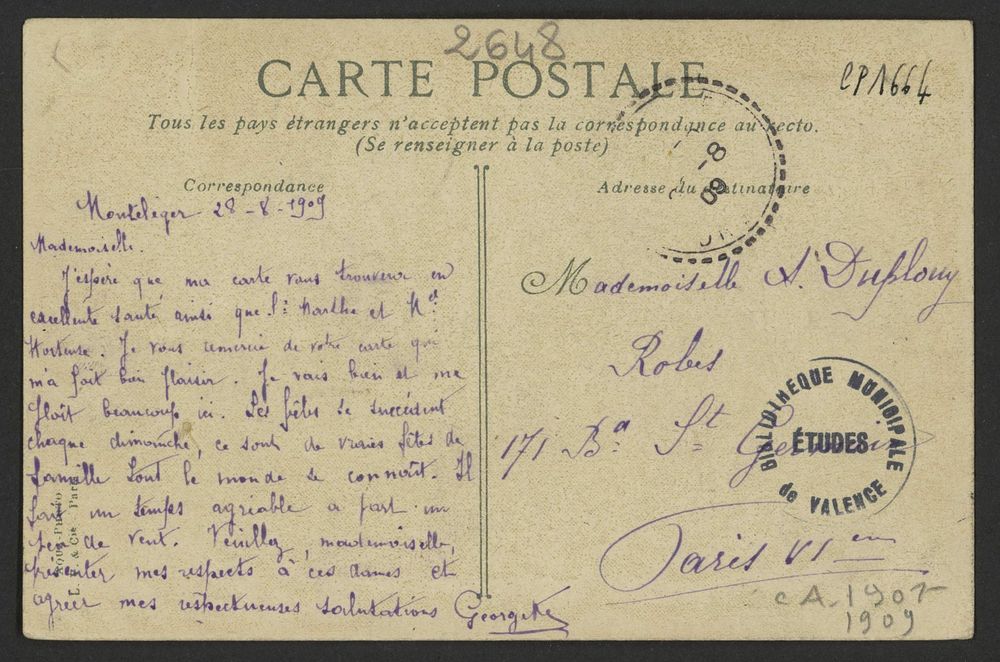 2648
CARTE POSTALE
CP1664
Tous les pays étrangers n'acceptent pas la correspondance au recto.
(Se renseigner à la poste)
-8
09
Correspondance
Montéléger 28-8-1909
Mademoiselle.
J'espère que ma carte vous trouvera en
excellente santé ainsi que Marthe et
Hortense. Je vous remercie de votre carte qui
m'a fait bien plaisir. Je vais bien et me
plaît beaucoup ici. Les fêtes se succèdent
chaque dimanche, ce sont de vraies fêtes de
famille tout le monde se connaît. Il
fait un temps agréable a part un
peu de vent. Veuillez, mademoiselle,
présenter mes respects à ces dames et
agréer mes respectueuses salutations Georgette
Adresse du Destinataire
Mademoiselle A. Duplouy
Robes
171 Bd St Germain
Paris VIem
BIBLIOTHEQUE MUNICIPALE
ÉTUDES
de VALENCE
CA. 1907-
1909